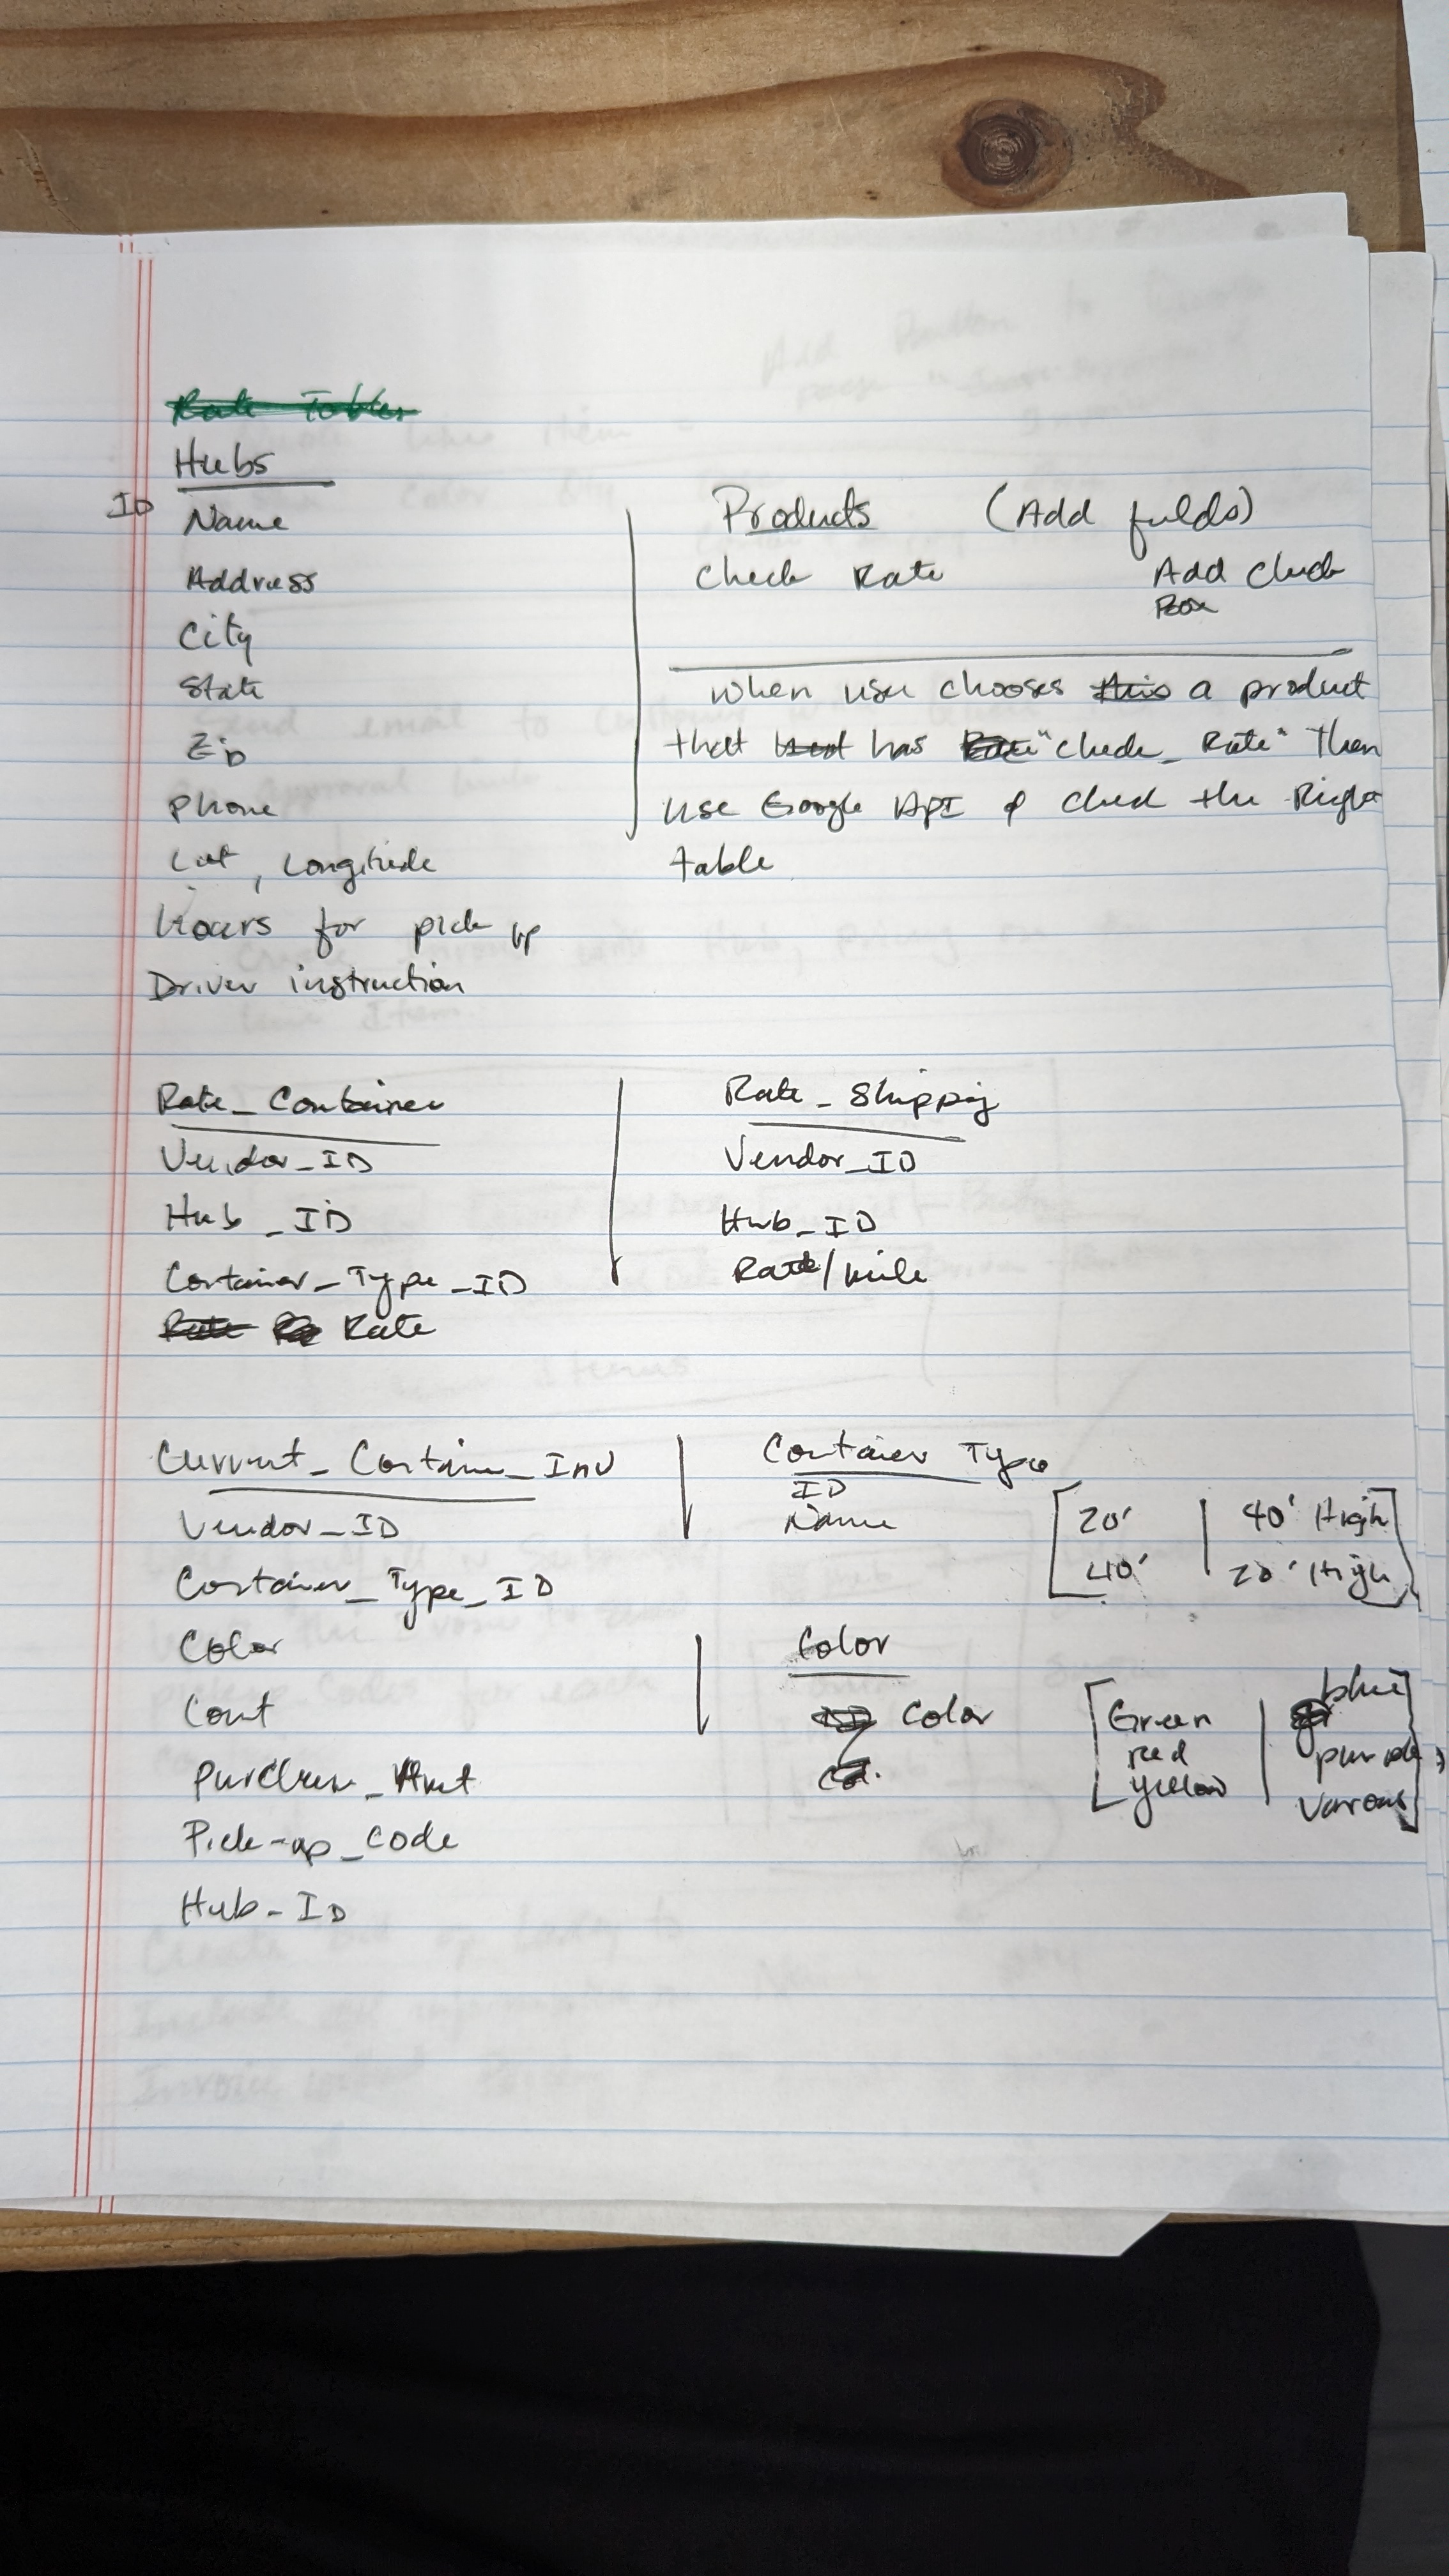 Rate Tables
Hubs
ID Name
Address
City
State
Zip
Phone
Lat, Longitude
Hours for pick up
Driver instruction
Products (Add fields)
Check Rate Add Check
Box
When user chooses this a product
that has "Check_Rate" Then
use Google API & check the Right
table
Rate_Container
Vendor_ID
Hub_ID
Container_Type_ID
Rate Rate
Rate_Shipping
Vendor_ID
Hub_ID
Rate/mile
Current_Container_Inv
Vendor_ID
Container_Type_ID
Color
Cont
Pick-up_Code
Hub-ID
Container Type
ID
Name
20' | 40' High
40' 20' High
Color
Color
Green | blue
red purple
yellow various